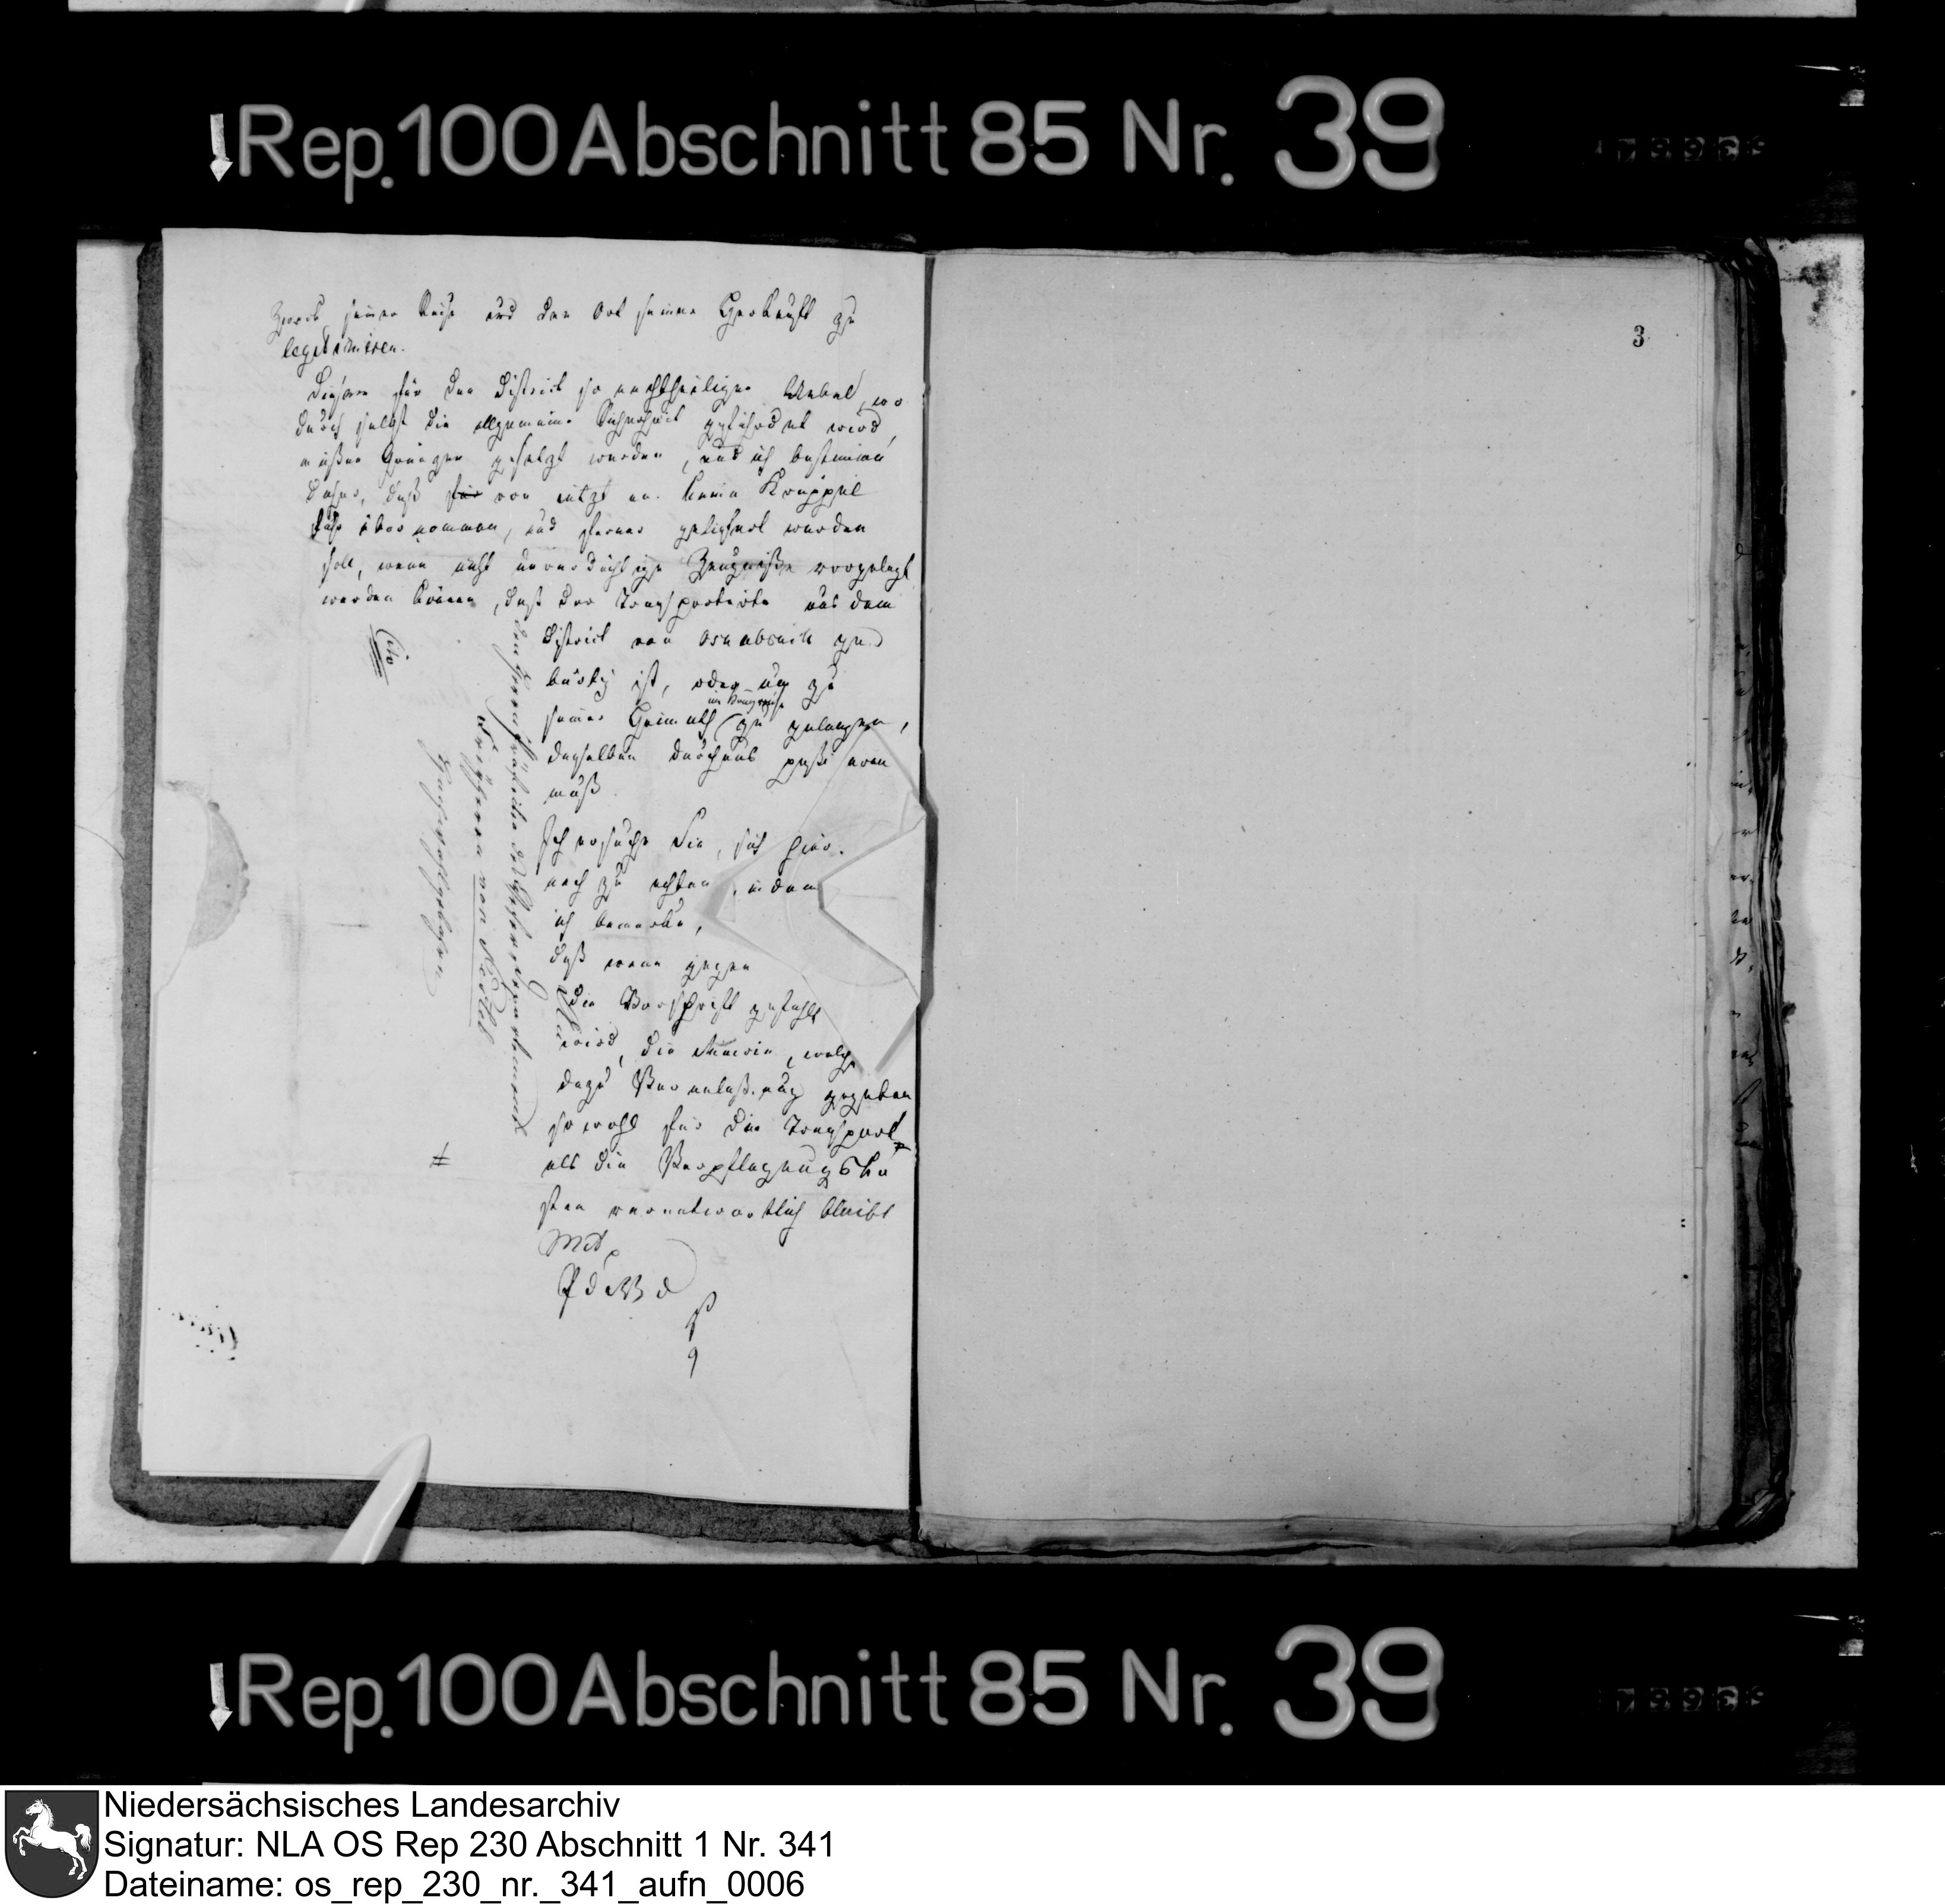 Rep. 100 Abschnitt 85 Nr. 39
3
Zweck seiner Reise und den Ort seiner Herkunft zu
legitimiren.
Diesem für den District so nachtheiligen Uebel, wo
durch selbst die allgemeine Sicherheit gefährdet wird,
müßen Grenzen gesetzt werden, und ich bestimme
daher, daß für von jetzt an keine Krüppel
Fuhr übernommen, und ferner geliefert werden
soll, wenn nicht unverdächtige Zeugniße vorgelegt
werden können, daß der Transportirte aus dem
District von Osnabrück ge
bürtig ist, oder um zu
im Königreiche
seiner Heimath zu gelangen,
denselben durchaus paßiren
muß.
Ich ersuche Sie, sich hier-
nach zu achten, indem
ich bemerke,
daß wenn gegen
die Vorschrift gefehlt
wird, die Mairie, welche
dazu Veranlaßung gegeben
sowohl für die Transport
als die Verpflegungsko
sten verantwortlich bleibt
Mit
P d W d
Cito
Freyherrn von
Hochwohlgebohren
Rep. 100 Abschnitt 85 Nr. 39
Niedersächsisches Landesarchiv
Signatur: NLA OS Rep 230 Abschnitt 1 Nr. 341
Dateiname: os_rep_230_nr._341_aufn_0006